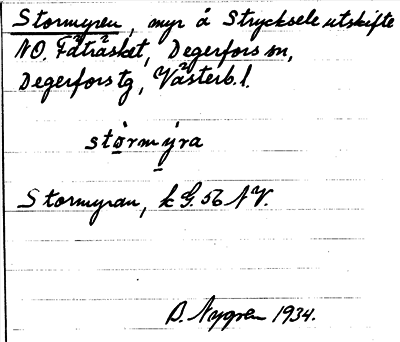 Stormyren, myr å Strycksele utskifte
NO. Fäträsket, Degerfors sn,
Degerfors tg, Västerb. l.
stòrmýra
Stormyran, k G. 56 NV.
B. Nygren 1934.